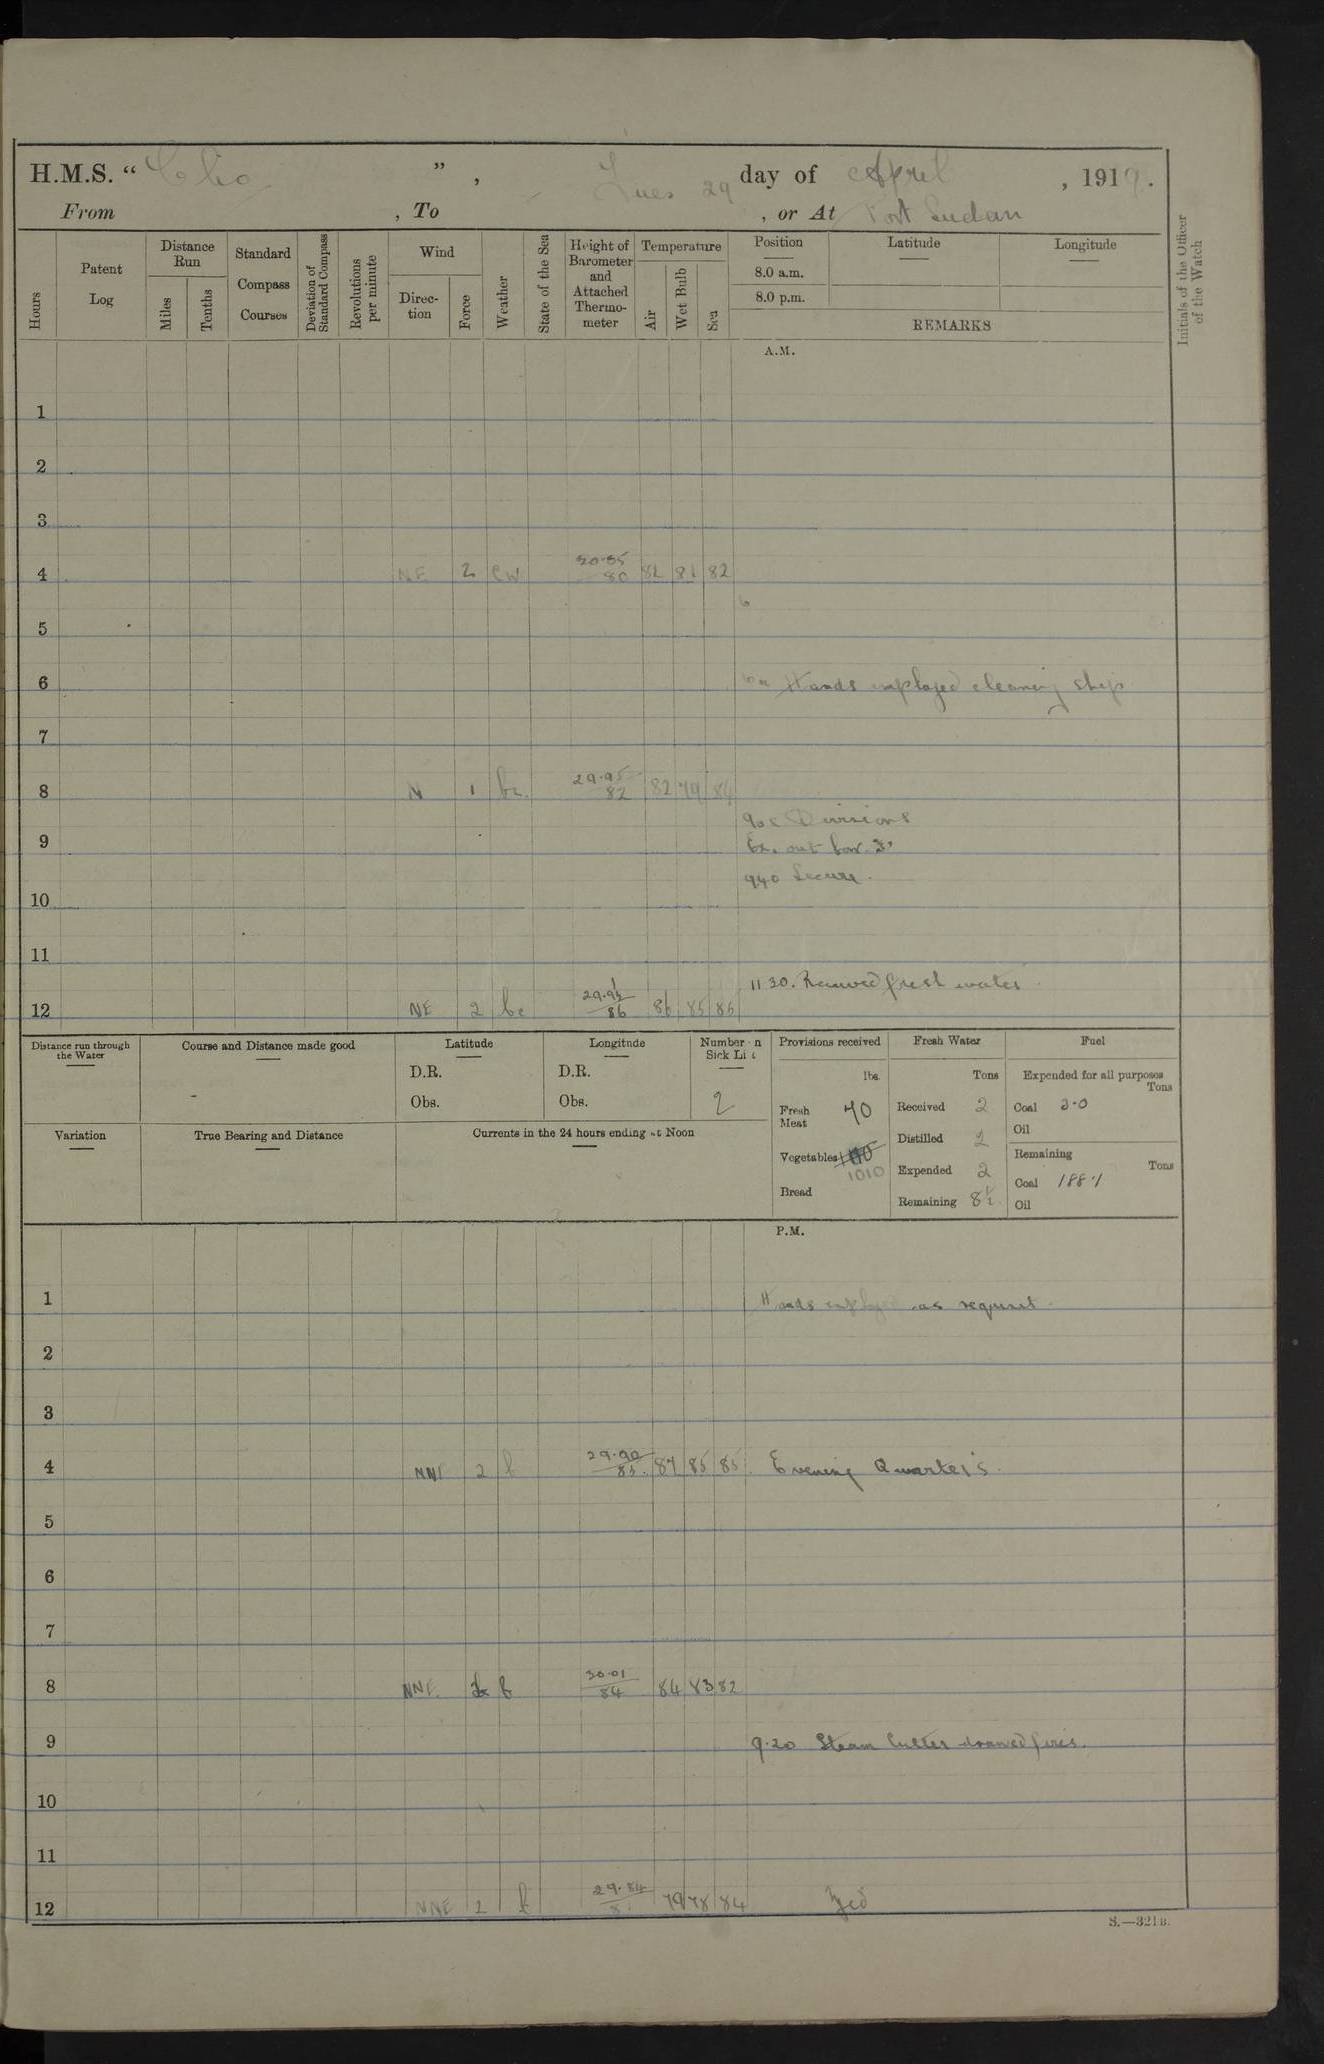 H.M.S. “ Clio ” , Tues 29 day of April , 1919.
From , To , or At Port Sudan
Hours
Patent Log
Distance Run
Miles
Tenths
Standard Compass Courses
Deviation of Standard Compass
Revolutions per minute
Wind
Direc- tion
Force
Weather
State of the Sea
Height of Barometer and Attached Thermo- meter
Temperature
Air
Wet Bulb
Sea
Position Latitude Longitude
8.0 a.m.
8.0 p.m.
REMARKS
Initials of the Officer of the Watch
A.M.
1
2
3
4 NE 2 80 81 82
5
6 Hands employed cleaning ship
7
8 N 1 bc 29.95 82 82 79 84
Divisions
9 Ex. out
940 Secure
10
11
11 30. Received fresh water
12 NE 2 bc 86 86 85 86
Distance run through the Water
Course and Distance made good
Latitude
D.R.
Obs.
Longitude
D.R.
Obs.
Number on Sick List
2
Variation
True Bearing and Distance
Currents in the 24 hours ending at Noon
Provisions received
lbs.
Fresh Meat 70
Vegetables 1010
Bread
Fresh Water
Tons
Received 2
Distilled 2
Expended 2
Remaining 8½
Fuel
Expended for all purposes
Tons
Coal 2.0
Oil
Remaining
Tons
Coal 188.1
Oil
P.M.
1 Hands employed as requisit
2
3
4 NNE 2 b 29.90 85 87 85 85 Evening Quarters
5
6
7
8 NNE b 30.01 84 84 83 82
9 9.20 Steam Cutter drawed fires.
10
11
12 NNE 2 b 29.84 79 78 84
S.—321B.